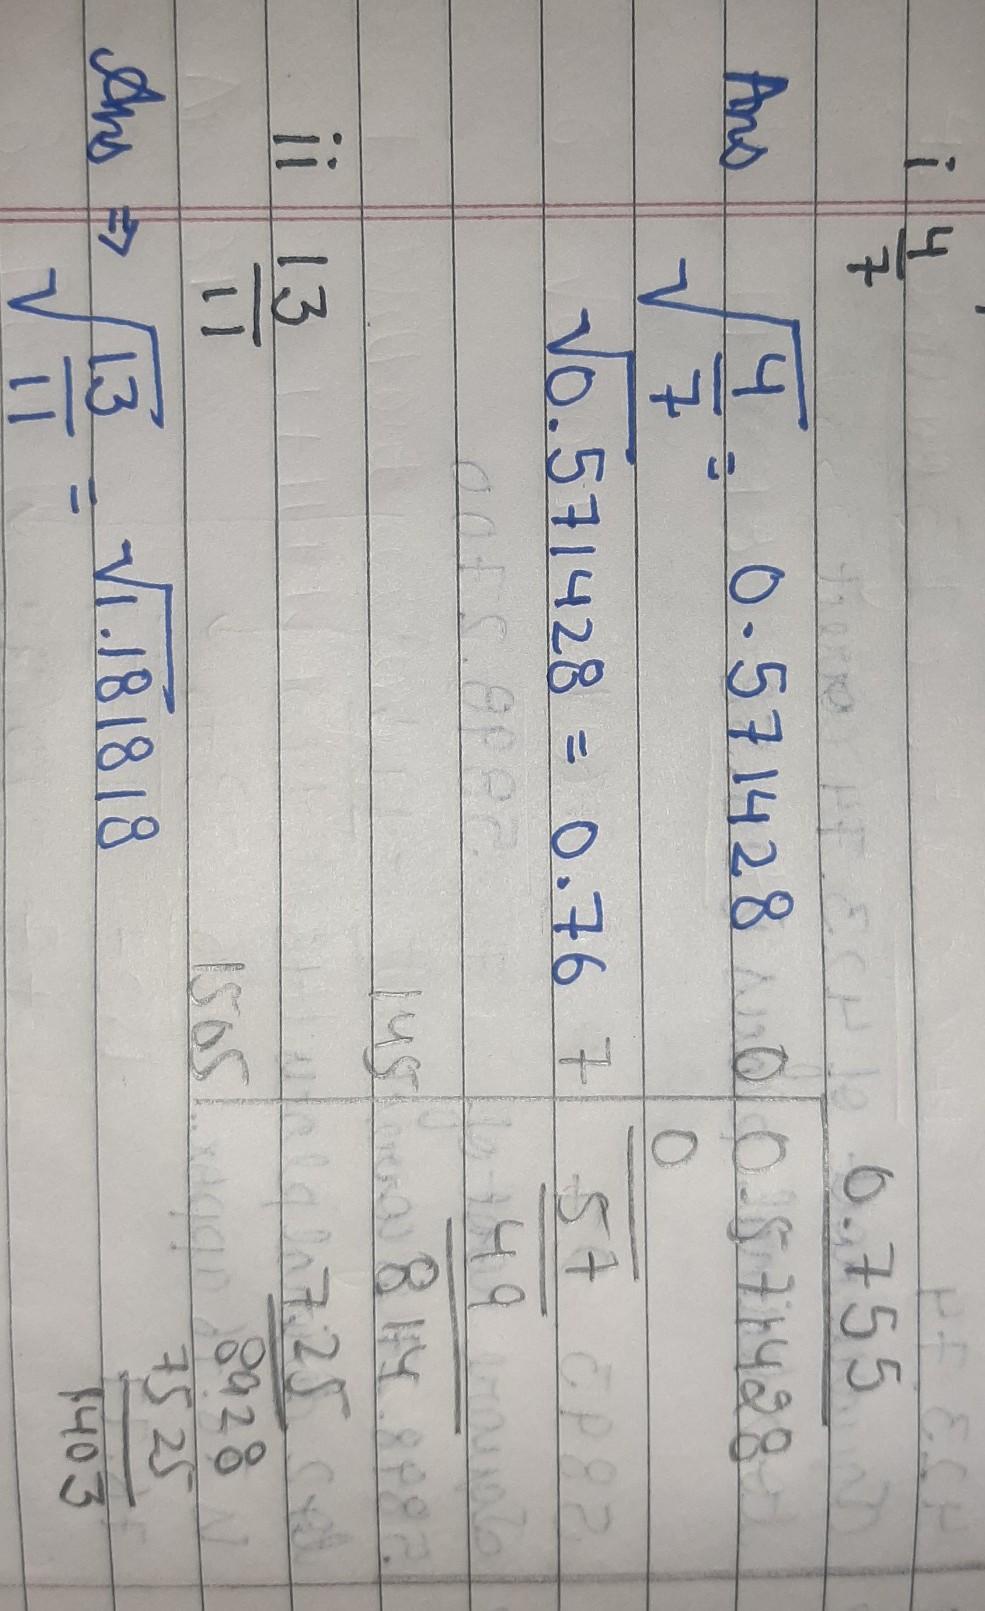 i 4/7
Ans √4/7 = 0.571428
√0.571428 = 0.76
ii 13/11
Ans ⇒ √13/11 = √1.181818
0.755
0 0.571428
0
7 57
49
145 814
725
1505 8928
7525
1403